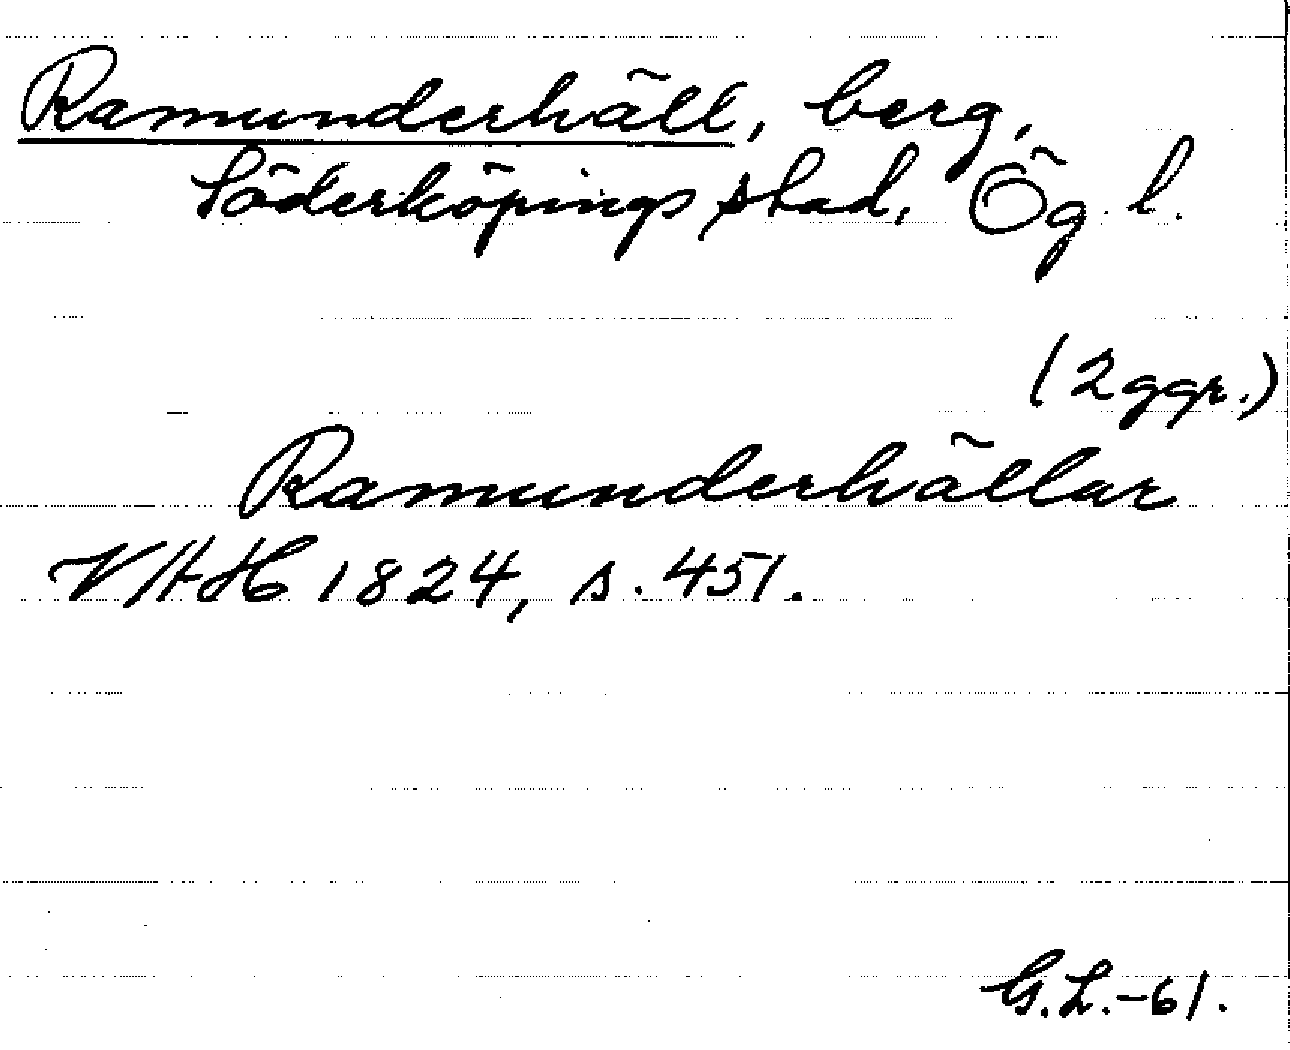 Ramunderhäll, berg,
Söderköpings stad, Ög. l.
(2 ggr.)
Ramunderhällar
VHAH 1824, s. 451.
G.L.-61.